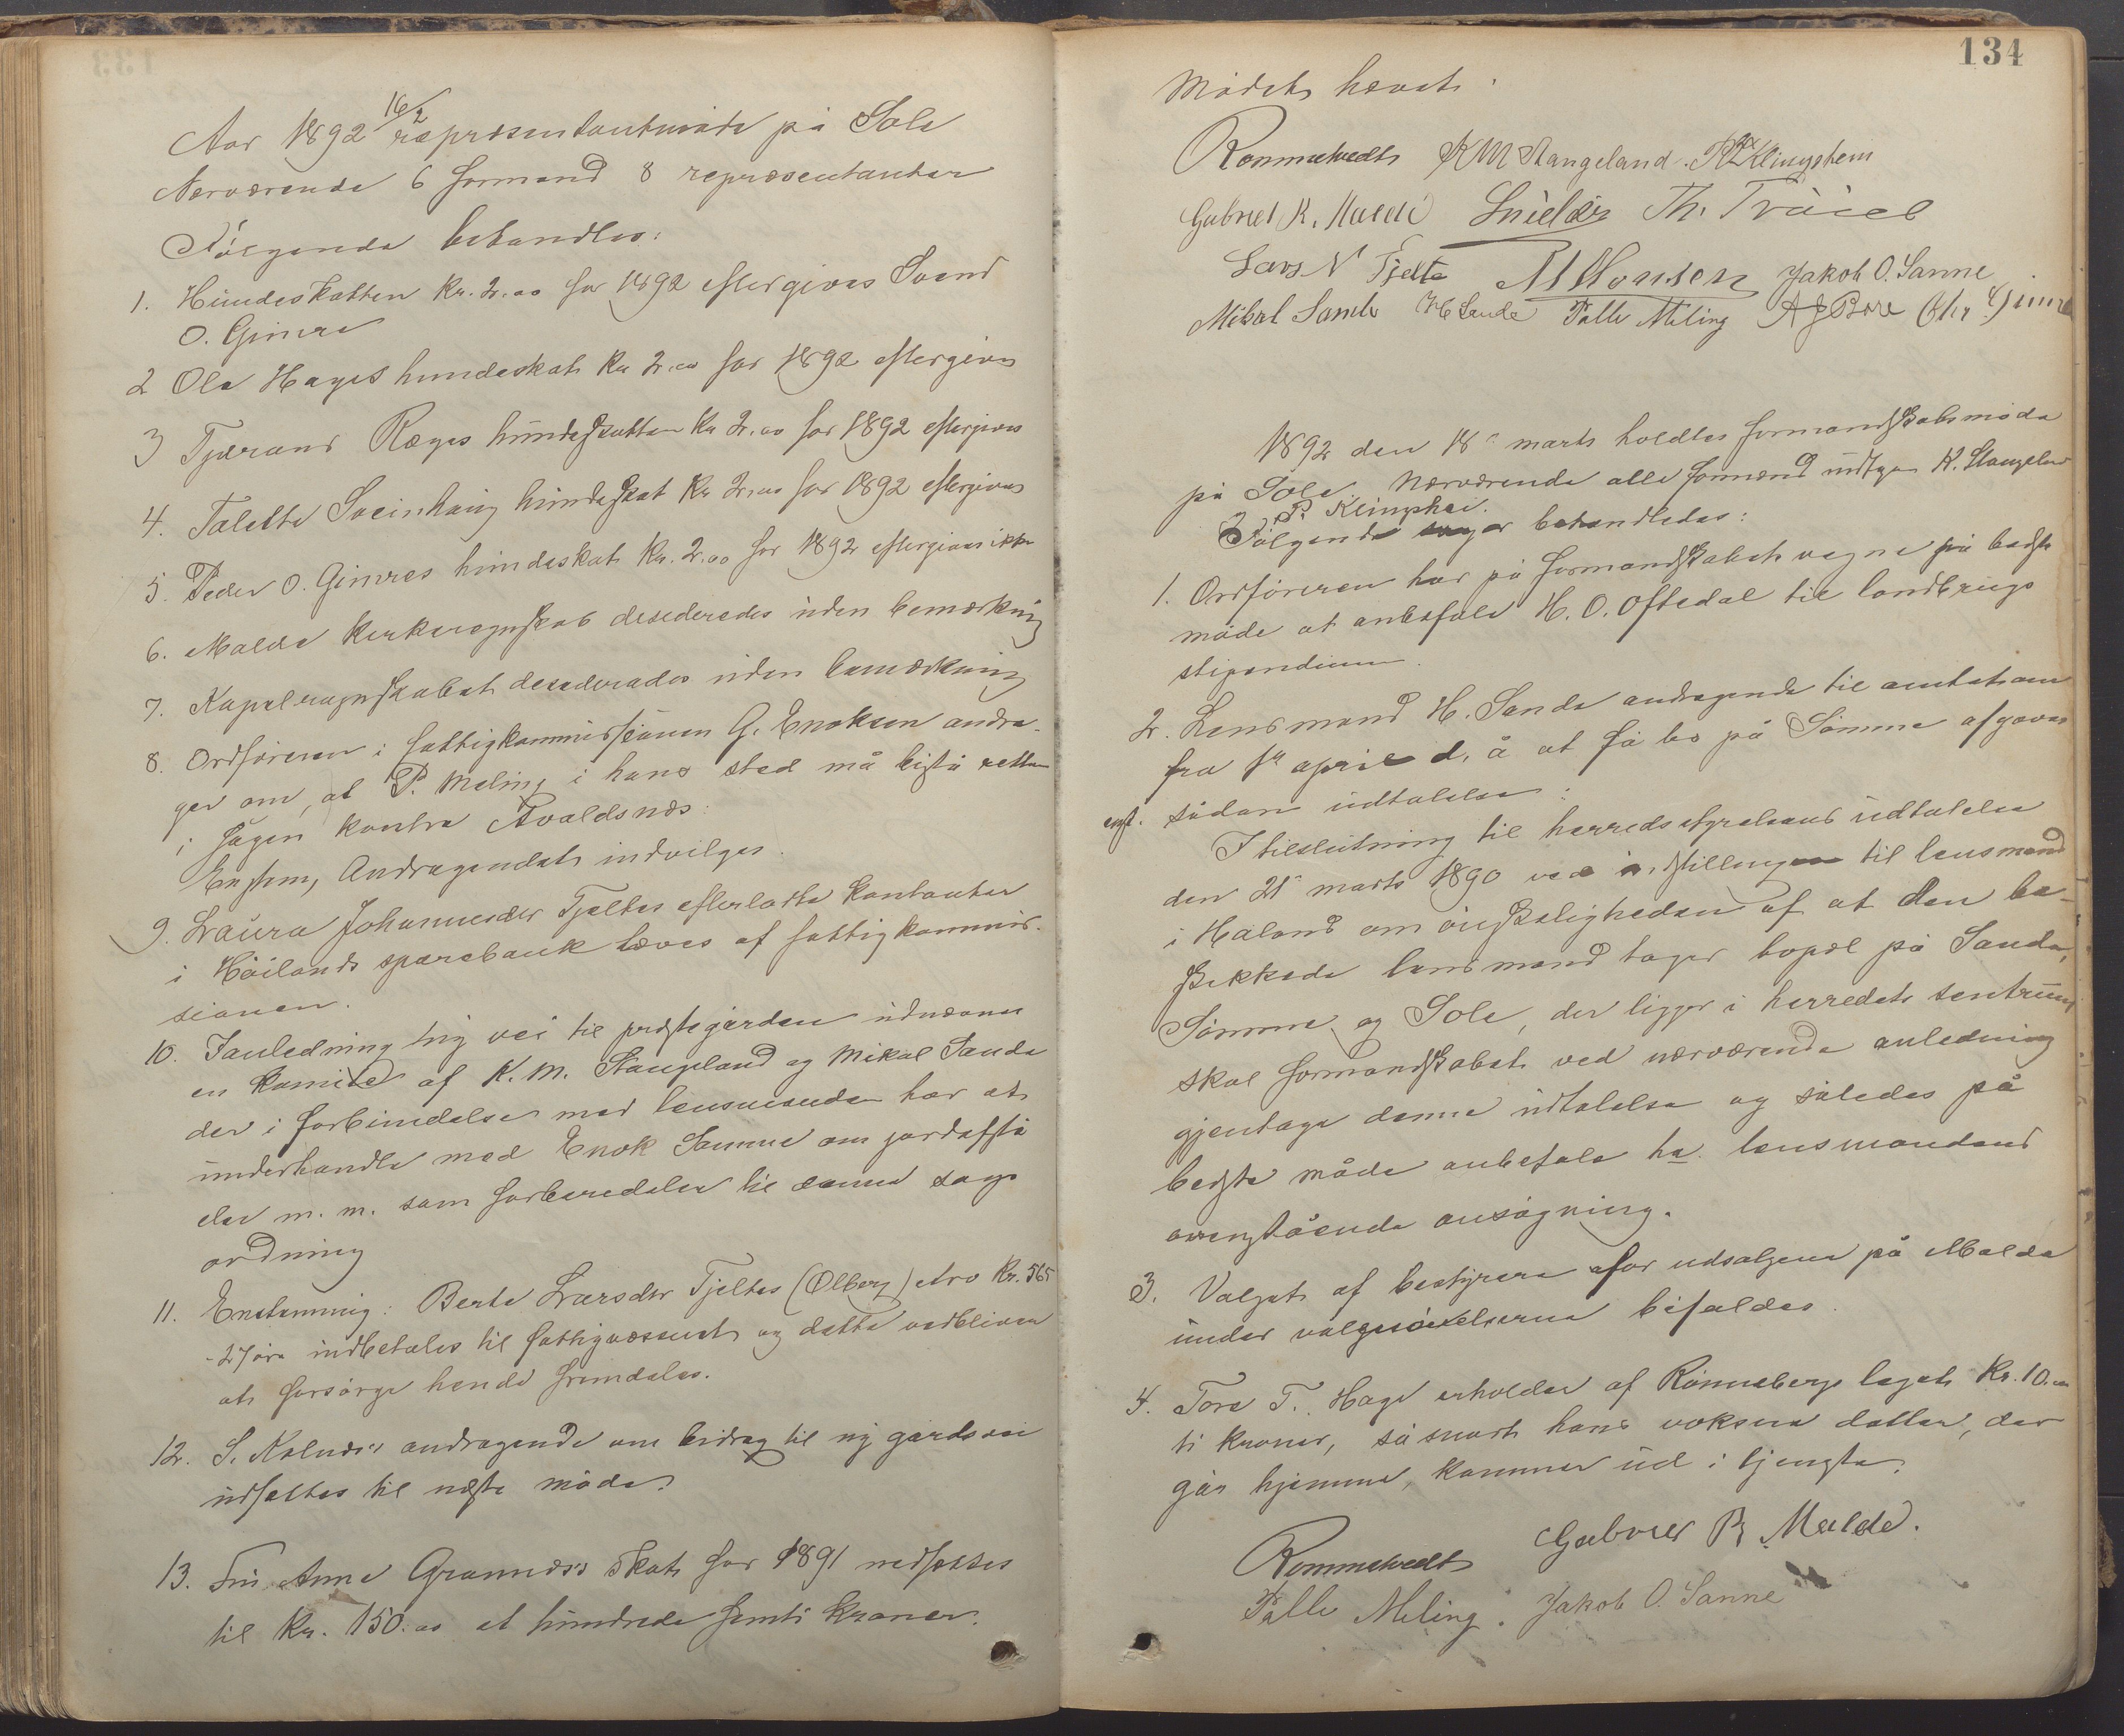 Aar 1892 16/2 repræsentantmøde på Sole
Nærværende 6 formænd 8 repræsentanter
Følgende behandles:
1. Hundeskatten Kr. 2.00 for 1892 eftergives Svend
O. Gimre
2 Ole Hages hundeskat Kr 2.00 for 1892 eftergives
3 Tjerand Ræges hundeskatten Kr 2.00 for 1892 eftergives
4. Talette Sveinhaug hundeskat Kr 2.00 for 1892 eftergives
5. Peder O. Gimres hundeskat Kr. 2.00 for 1892 eftergives ikke
6. Malde kirkeregnskab desideredes uden bemærkning
7. Kapelregnskabet desideredes uden bemærkning
8. Ordføreren i fattigkommissionen G. Enoksen andra-
ger om, at P. Meling i hans sted må bistå retten
i sagen kontra Avaldsnæs:
Enstem, Andragendet indvilges.
9. Laura Johannesdtr Tjeltes efterladte kontanter
i Høilands sparebank hæves af fattigkommis-
sionen.
10. I anledning ny vei til prestegården udnævnes
en komite af K. M. Stangeland og Mikal Sande
der i forbindelse med lensmanden har at
underhandle med Enok Sømme om jordafstå
else m. m. som forberedelse til denne sags
ordning
11. Enstemmig: Berte Larsdtr Tjeltes (Ølberg) Arv Kr. 565
-27 øre indbetales til fattigvæsenet og dette vedbliver
at forsørge hende fremdeles.
12. S. Kolnæs's andragende om bidrag til ny gårdsvei
udsættes til næste møde.
13. Fru Anne Grannæs's skat for 1891 nedsættes
til Kr. 150.00 et hundrede femti kroner.
134
Mødet hævet.
Rommetvedt KM Stangeland. P Klingsheim
Gabriel R. Malde Smiedær Th. Tvåiel
Lars N Tjelte M Monsen Jakob O. Sanne
Mikal Sande H Sande Palle Meling A J Bore Chr Gimre
1892 den 18de marts holdtes formandskabsmøde
på Sole. Nærværende alle formænd undtagen K. Stangeland
P. Klingshei.
Følgende sager behandledes:
1. Ordføreren har på formandskabets vegne på bedste
måde at anbefale H. O. Oftedal til landbrugs
stipendium.
2. Lensmand H. Sande andragende til amtet om
fra 1ste april d. å at få bo på Sømme afgaves
enst. sådan udtalelse:
I tilslutning til herredsstyrelsens udtalelse
den 21de marts 1890 ved indstillingen til lensmand
i Håland om ønskeligheden af at den be-
skikkede lensmand tager bopæl på Sande,
Sømme og Sole, der ligger i herredets sentrum
skal formandskabet ved nærværende anledning
gjentage denne udtalelse og således på
bedste måde anbefale hr. lensmandens
ovenstående ansøgning.
3. Valget af bestyrere for udsalgene på Malde
under valgmøderne bifaldes.
4. Tore T. Hage erholder af Rønneberg legat Kr. 10.00
ti kroner, så snart hans voksne datter, der
går hjemme, kommer ud i tjeneste.
Rommetvedt Gabriel R. Malde.
Palle Meling. Jakob O. Sanne